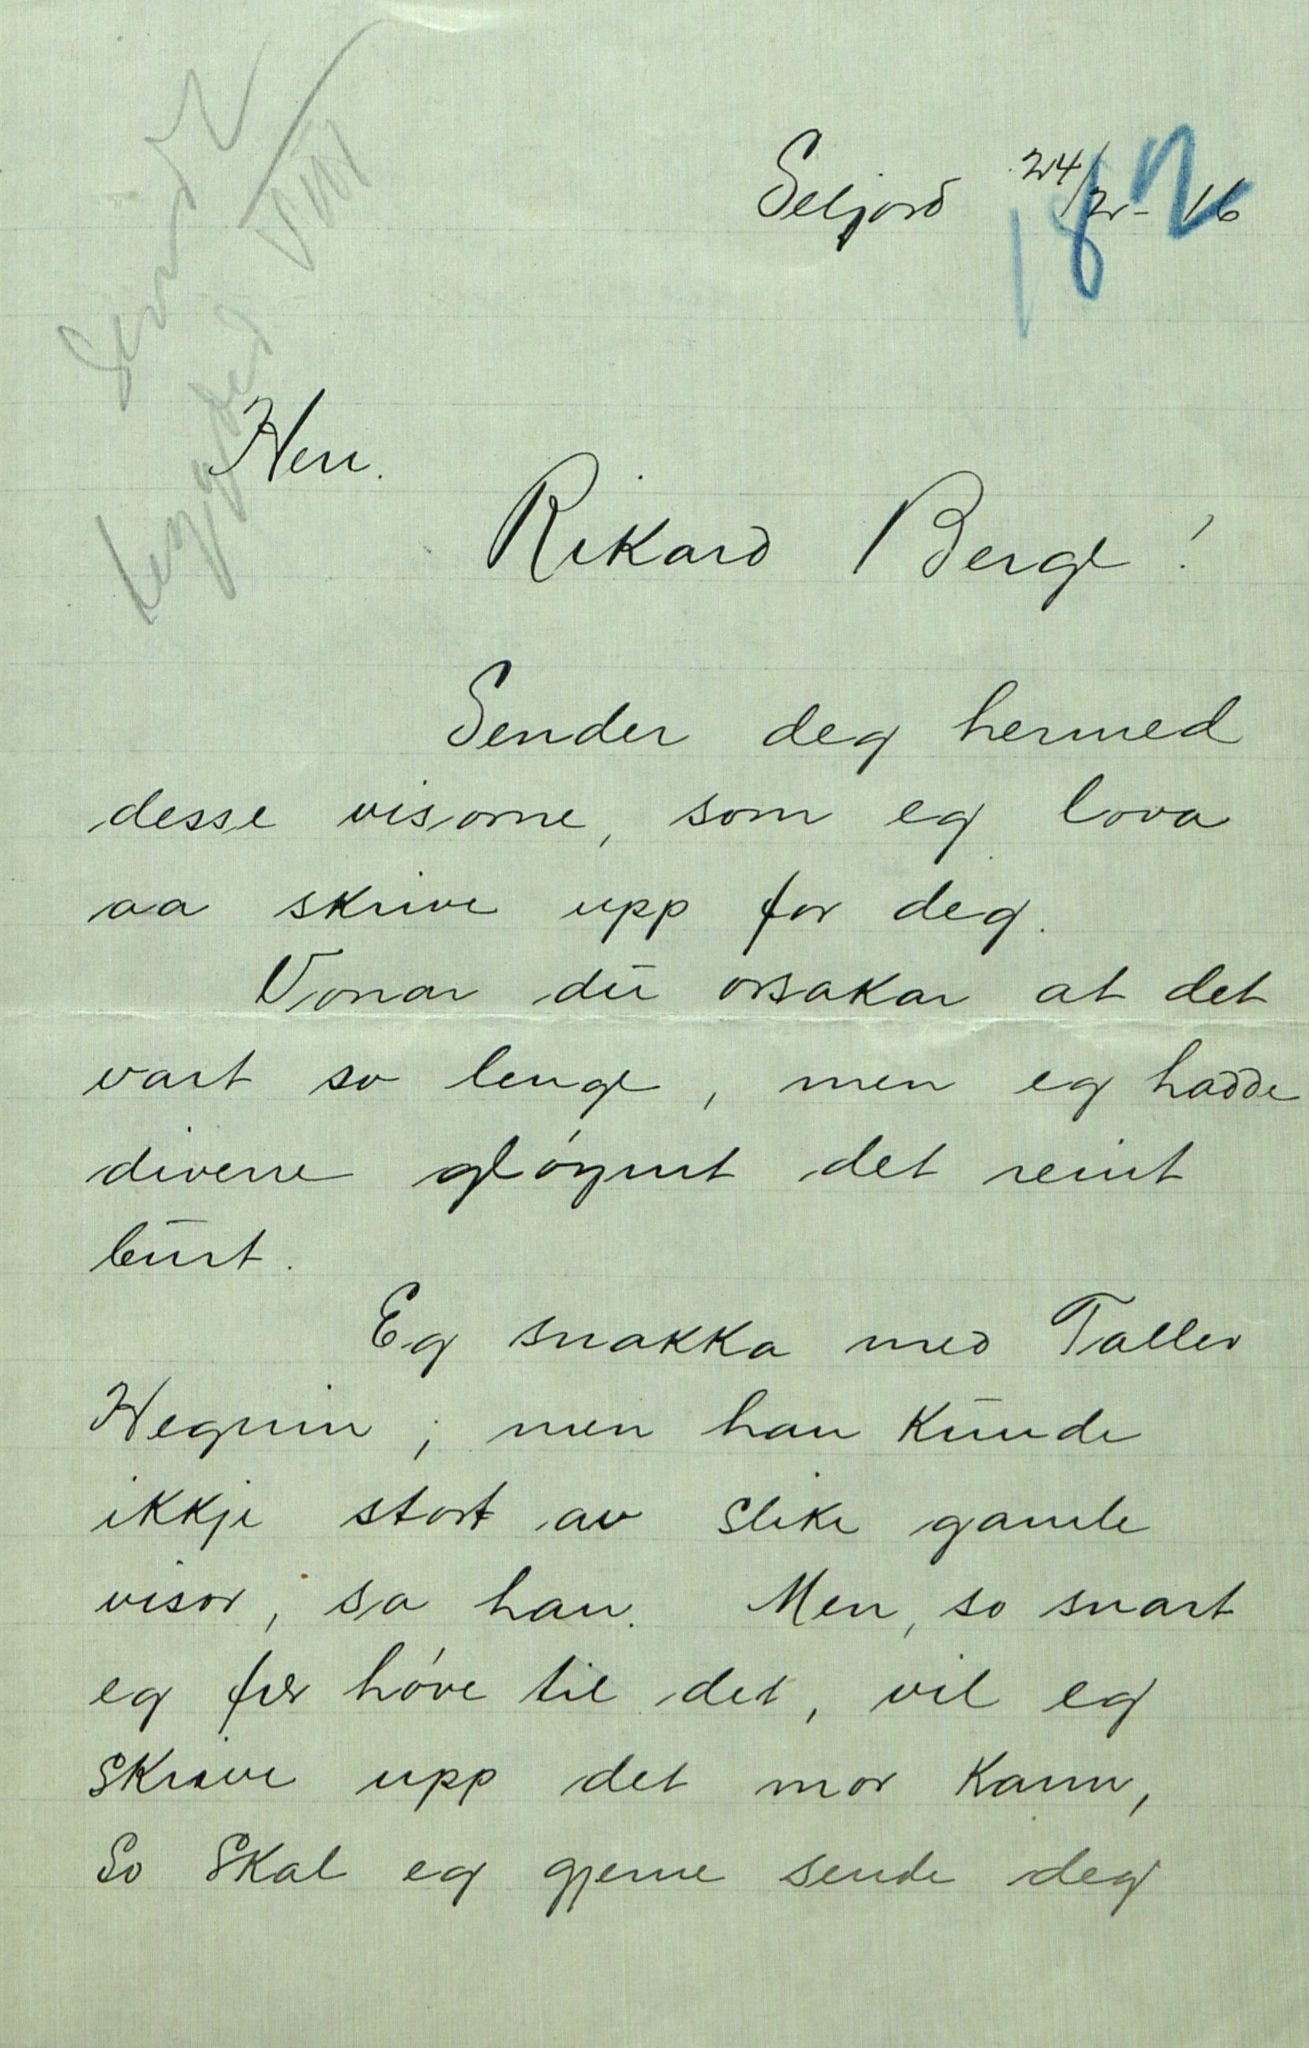 Seljord 24/2-16
182
VIII
Herr.
Rikard Berge!
Sender deg hermed
desse visorne, som eg lova
aa skrive upp for deg.
Vonar dū orsakar at det
vart so lenge, men eg hadde
diverre gløymt det reint
būrt.
Eg snakka med Tallev
Hegnin; men han kūnde
ikkje stort av slike gamle
visor, sa han. Men, so snart
eg fær høve til det, vil eg
skrive upp det mor kann,
So skal eg gjerne sende deg